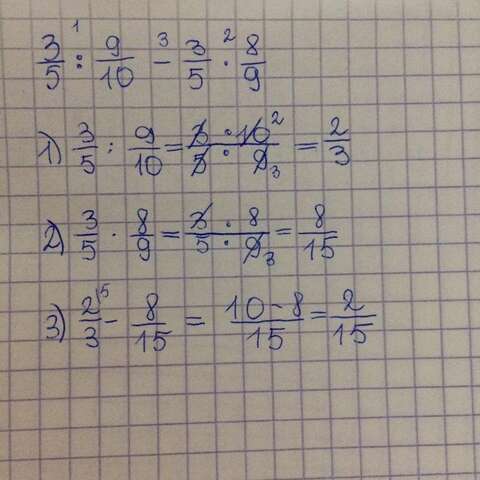 3/5 :¹ 9/10 -³ 3/5 ·² 8/9
1) 3/5 : 9/10 = 3 · 10²/5 · 9₃ = 2/3
2) 3/5 · 8/9 = 3 · 8/5 · 9₃ = 8/15
3) 2⁵/3 - 8/15 = 10 - 8/15 = 2/15